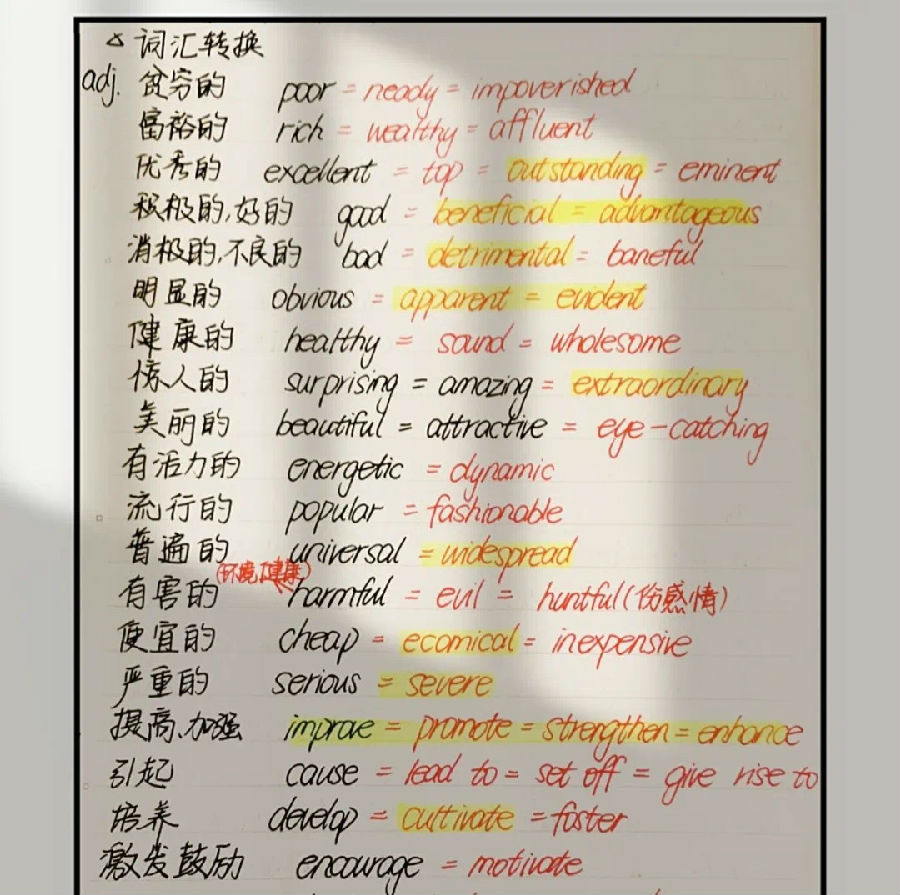 △ 词汇转换
adj. 贫穷的 poor = neady = impoverished
富裕的 rich = wealthy = affluent
优秀的 excellent = top = outstanding = eminent
积极的,好的 good = beneficial = advantageous
消极的,不良的 bad = detrimental = baneful
明显的 obvious = apparent = evident
健康的 healthy = sound = wholesome
惊人的 surprising = amazing = extraordinary
美丽的 beautiful = attractive = eye-catching
有活力的 energetic = dynamic
流行的 popular = fashionable
普遍的 universal = widespread
(环境,健康)
有害的 harmful = evil = huntful(伤感情)
便宜的 cheap = ecomical = inexpensive
严重的 serious = severe
提高、加强 improve = promote = strengthen = enhance
引起 cause = lead to = set off = give rise to
培养 develop = cultivate = foster
激发鼓励 encourage = motivate